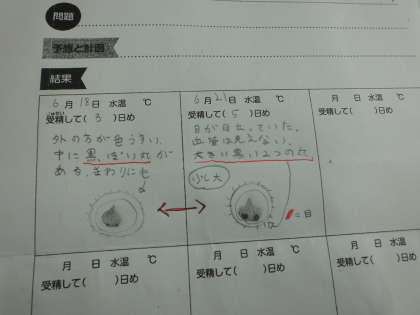 問題
予想と計画
結果
6月18日 水温 ℃
受精して(3)日め
外の方が色うすい。
中に黒っぽい丸が
ある。まわりに毛
6月21日 水温 ℃
受精して(5)日め
目が目立っていた。
血管は見えない。
大きい黒い2つの丸
少し大
=目
月 日 水温 ℃
受精して( )日め
月 日 水温 ℃
受精して( )日め
月 日 水温 ℃
受精して( )日め
月 日 水温 ℃
受精して( )日め